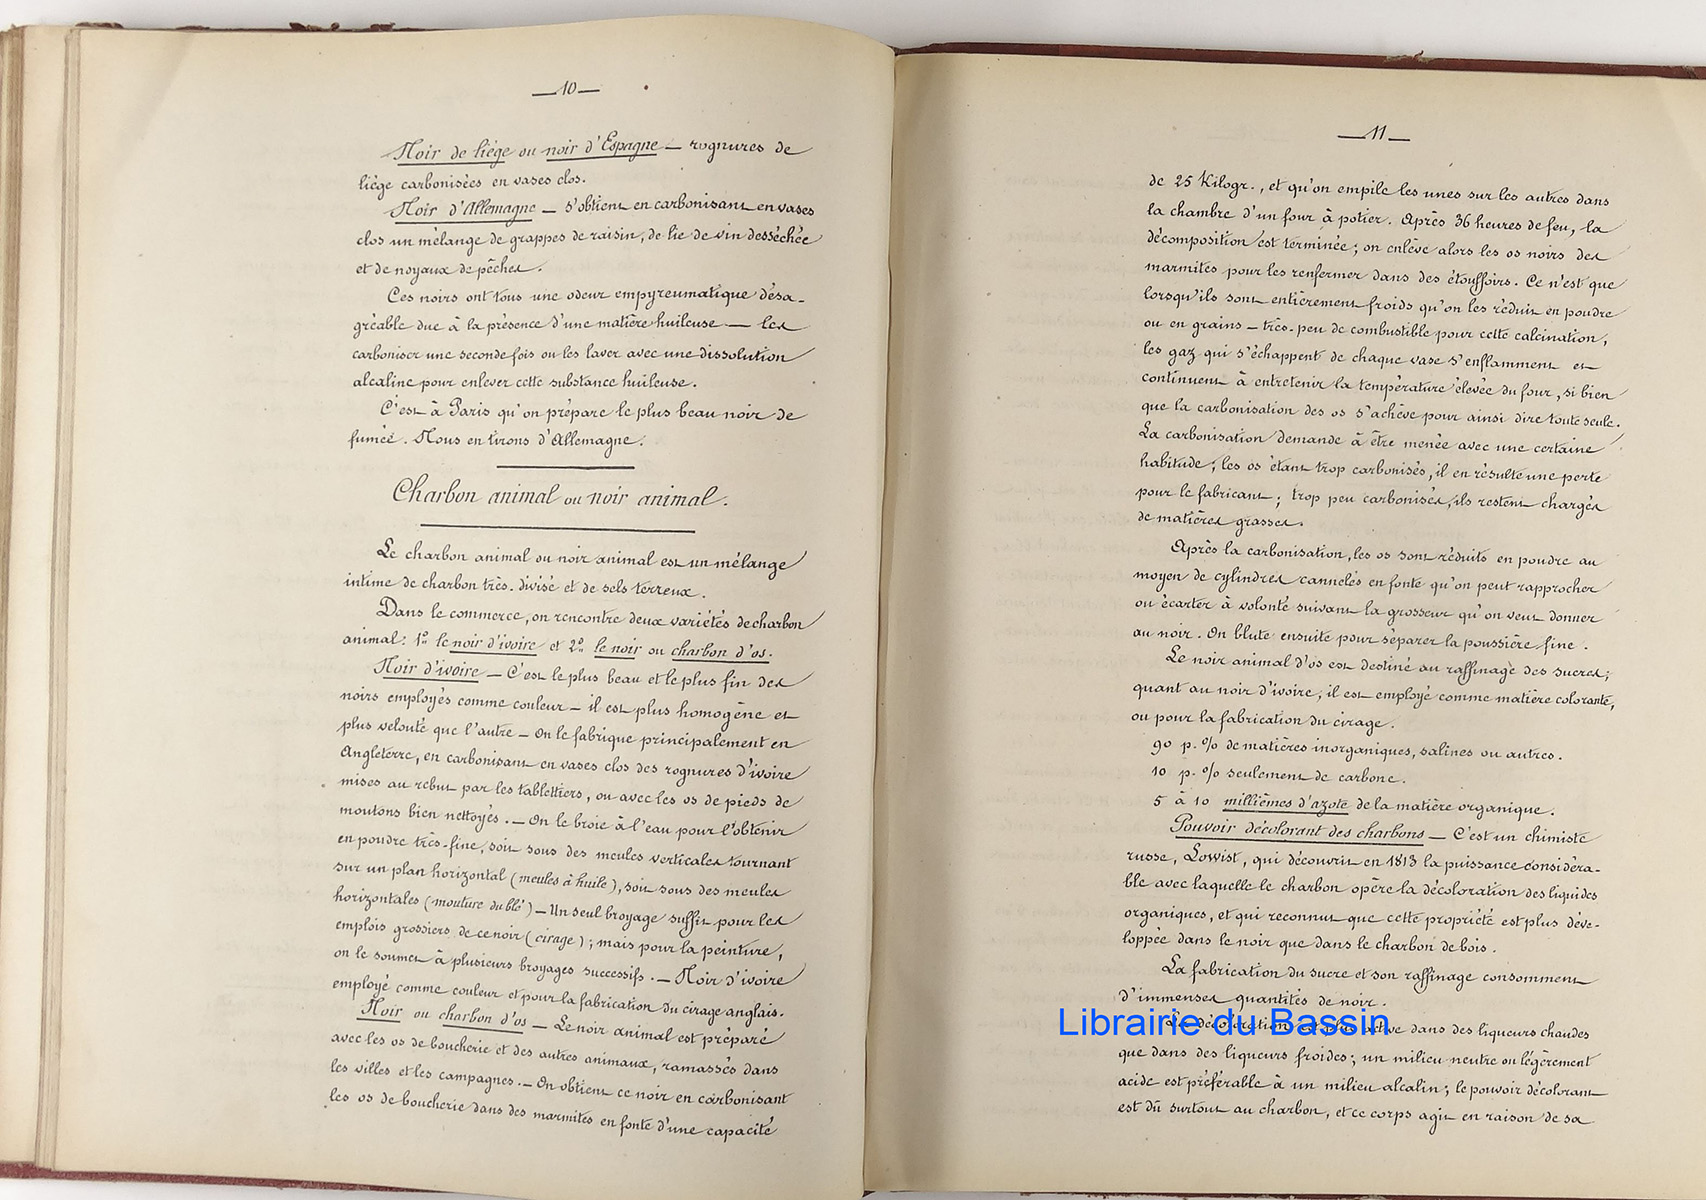 — 10 —
Noir de liége ou noir d'Espagne — rognures de
liége carbonisées en vases clos.
Noir d'Allemagne — S'obtient en carbonisant en vases
clos un mélange de grappes de raisin, de lie de vin desséchée
et de noyaux de pêches.
Ces noirs ont tous une odeur empyreumatique désa-
gréable due à la présence d'une matière huileuse — les
carboniser une seconde fois ou les laver avec une dissolution
alcaline pour enlever cette substance huileuse.
C'est à Paris qu'on prépare le plus beau noir de
fumée. Nous en tirons d'Allemagne.
Charbon animal ou noir animal.
Le charbon animal ou noir animal est un mélange
intime de charbon très-divisé et de sels terreux.
Dans le commerce, on rencontre deux variétés de charbon
animal: 1º le noir d'ivoire et 2º le noir ou charbon d'os.
Noir d'ivoire — C'est le plus beau et le plus fin des
noirs employés comme couleur — il est plus homogène et
plus velouté que l'autre — On le fabrique principalement en
Angleterre, en carbonisant en vases clos des rognures d'ivoire
mises au rebut par les tablettiers, ou avec les os de pieds de
moutons bien nettoyés. — On le broie à l'eau pour l'obtenir
en poudre très-fine, soit sous des meules verticales tournant
sur un plan horizontal (meules à huile), soit sous des meules
horizontales (mouture du blé) — Un seul broyage suffit pour les
emplois grossiers de ce noir (cirage); mais pour la peinture,
on le soumet à plusieurs broyages successifs. — Noir d'ivoire
employé comme couleur et pour la fabrication du cirage anglais.
Noir ou charbon d'os — Le noir animal est préparé
avec les os de boucherie et des autres animaux, ramassés dans
les villes et les campagnes. — On obtient ce noir en carbonisant
les os de boucherie dans des marmites en fonte d'une capacité
— 11 —
de 25 Kilogr., et qu'on empile les unes sur les autres dans
la chambre d'un four à potier. Après 36 heures de feu, la
décomposition est terminée; on enlève alors les os noirs des
marmites pour les renfermer dans des étouffoirs. Ce n'est que
lorsqu'ils sont entièrement froids qu'on les réduit en poudre
ou en grains — très-peu de combustible pour cette calcination,
les gaz qui s'échappent de chaque vase s'enflamment et
continuent à entretenir la température élevée du four, si bien
que la carbonisation des os s'achève pour ainsi dire toute seule.
La carbonisation demande à être menée avec une certaine
habitude; les os étant trop carbonisés, il en résulte une perte
pour le fabricant; trop peu carbonisés, ils restent chargés
de matières grasses.
Après la carbonisation, les os sont réduits en poudre au
moyen de cylindres cannelés en fonte qu'on peut rapprocher
ou écarter à volonté suivant la grosseur qu'on veut donner
au noir. On blute ensuite pour séparer la poussière fine.
Le noir animal d'os est destiné au raffinage des sucres;
quant au noir d'ivoire, il est employé comme matière colorante,
ou pour la fabrication du cirage.
90 p. % de matières inorganiques, salines ou autres.
10 p. % seulement de carbone.
5 à 10 millièmes d'azote de la matière organique.
Pouvoir décolorant des charbons — C'est un chimiste
russe, Lowist, qui découvrit en 1813 la puissance considéra-
ble avec laquelle le charbon opère la décoloration des liquides
organiques, et qui reconnut que cette propriété est plus déve-
loppée dans le noir que dans le charbon de bois.
La fabrication du sucre et son raffinage consomment
d'immenses quantités de noir.
La décoloration est plus active dans des liqueurs chaudes
que dans des liqueurs froides; un milieu neutre ou légèrement
acide est préférable à un milieu alcalin; le pouvoir décolorant
est dû surtout au charbon, et ce corps agit en raison de sa
Librairie du Bassin